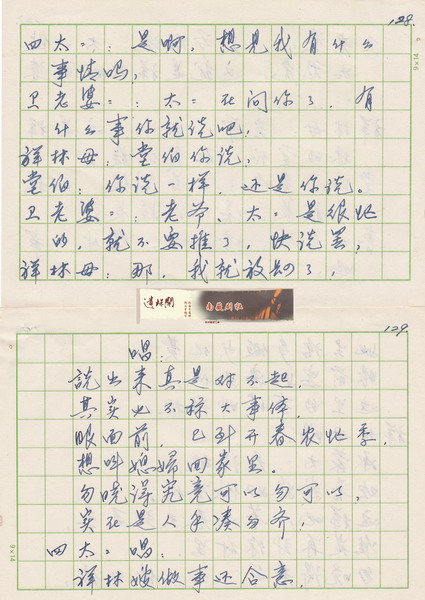 128.
四太=：是啊，想见我有什么
事情吗，
卫老婆=：太=在问你了，有
什么事你就说吧，
祥林母：堂伯你说，
堂伯：你说一样，还是你说。
卫老婆=：老爷、太=是很忙
的，就不要推了，快说罢，
祥林母：那，我就放肆了，
遗珠阁
129.
唱：
説出来真是对不起，
其实也不称大事体，
眼面前，已到开春农忙季，
想叫媳婦回家里。
勿晓得究竟可以勿可以，
实在是人手凑勿齐，
四太=唱：
祥林嫂做事还合意，
9×14
9×14